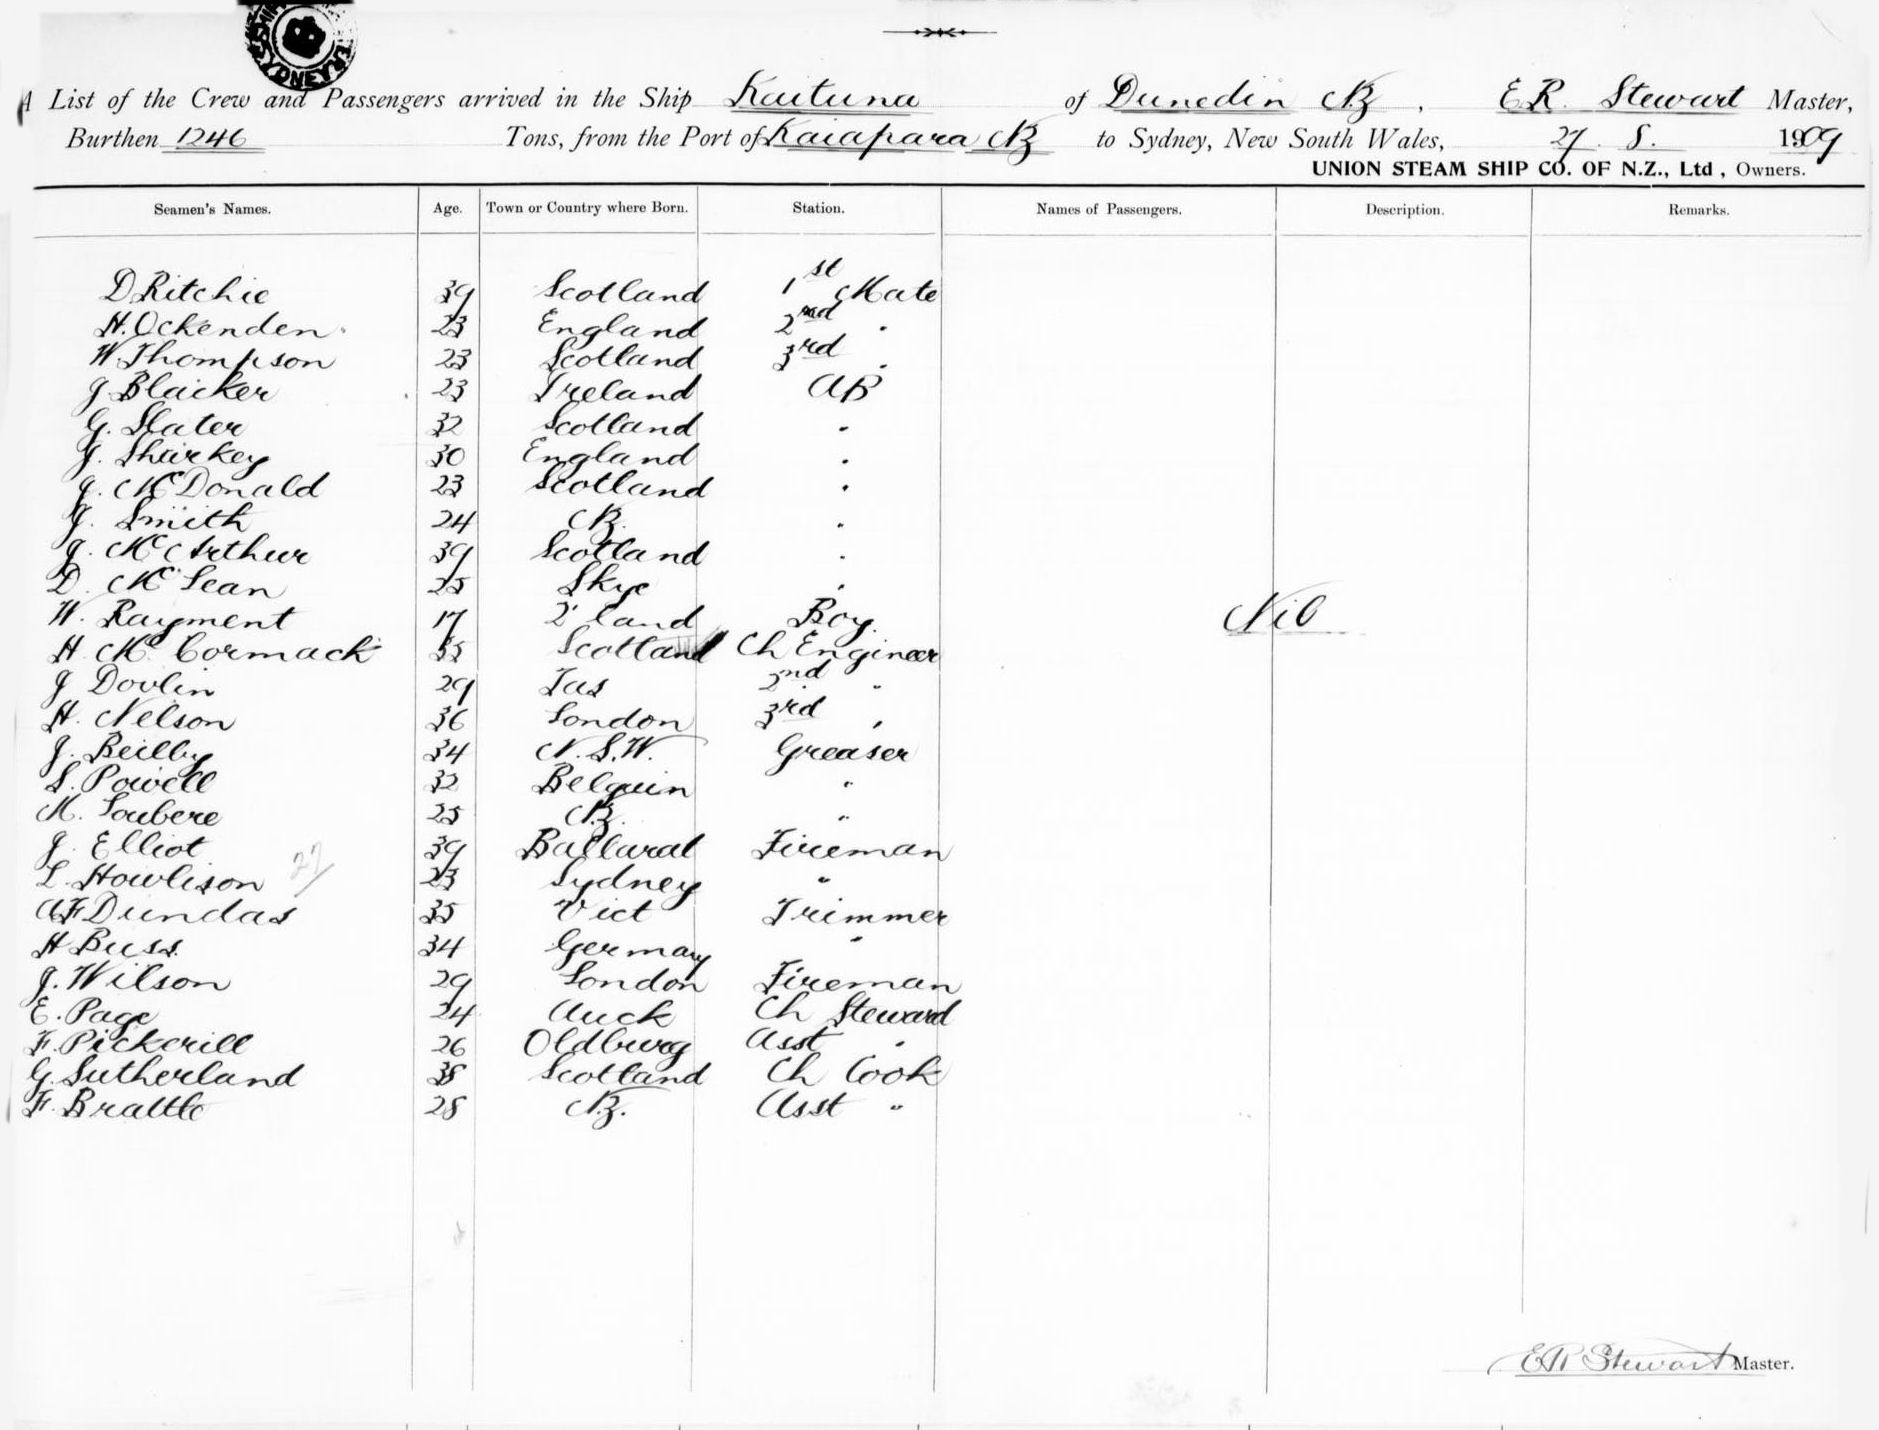 A List of the Crew and Passengers arrived in the Ship Kaituna of Dunedin NZ, E R. Stewart Master,
Burthen 1246 Tons, from the Port of Kaiapara NZ to Sydney, New South Wales, 27. 8. 1909
UNION STEAM SHIP CO. OF N.Z., Ltd, Owners.
Seamen's Names. Age. Town or Country where Born. Station. Names of Passengers. Description. Remarks.
D Ritchie 39 Scotland 1st Mate
H. Ockenden 23 England 2nd "
W. Thompson 23 Scotland 3rd "
J Blacker 23 Ireland AB
G. Slater 32 Scotland "
J. Sharkey 30 England "
J. McDonald 23 Scotland "
J. Smith 24 NZ. "
J. McArthur 39 Scotland "
D. McLean 25 Skye "
W. Rayment 17 Q'land Boy.
Nil
H. McCormack 35 Scotland Ch Engineer
J Dovlin 29 Tas 2nd "
H. Nelson 36 London 3rd "
J. Beilby 34 N.S.W. Greaser
S. Powell 32 Belguin "
M. Loubere 25 NZ. "
J. Elliot 39 Ballarat Fireman
L. Howlison 27 23 Sydney "
A F Dundas 35 Vict Trimmer
H Buss. 34 Germany "
J. Wilson 29 London Fireman
E. Page 24 Auck Ch Steward
F. Pickerill 26 Oldburg Asst "
G. Sutherland 38 Scotland Ch Cook
F. Brattle 28 NZ. Asst "
E R Stewart Master.